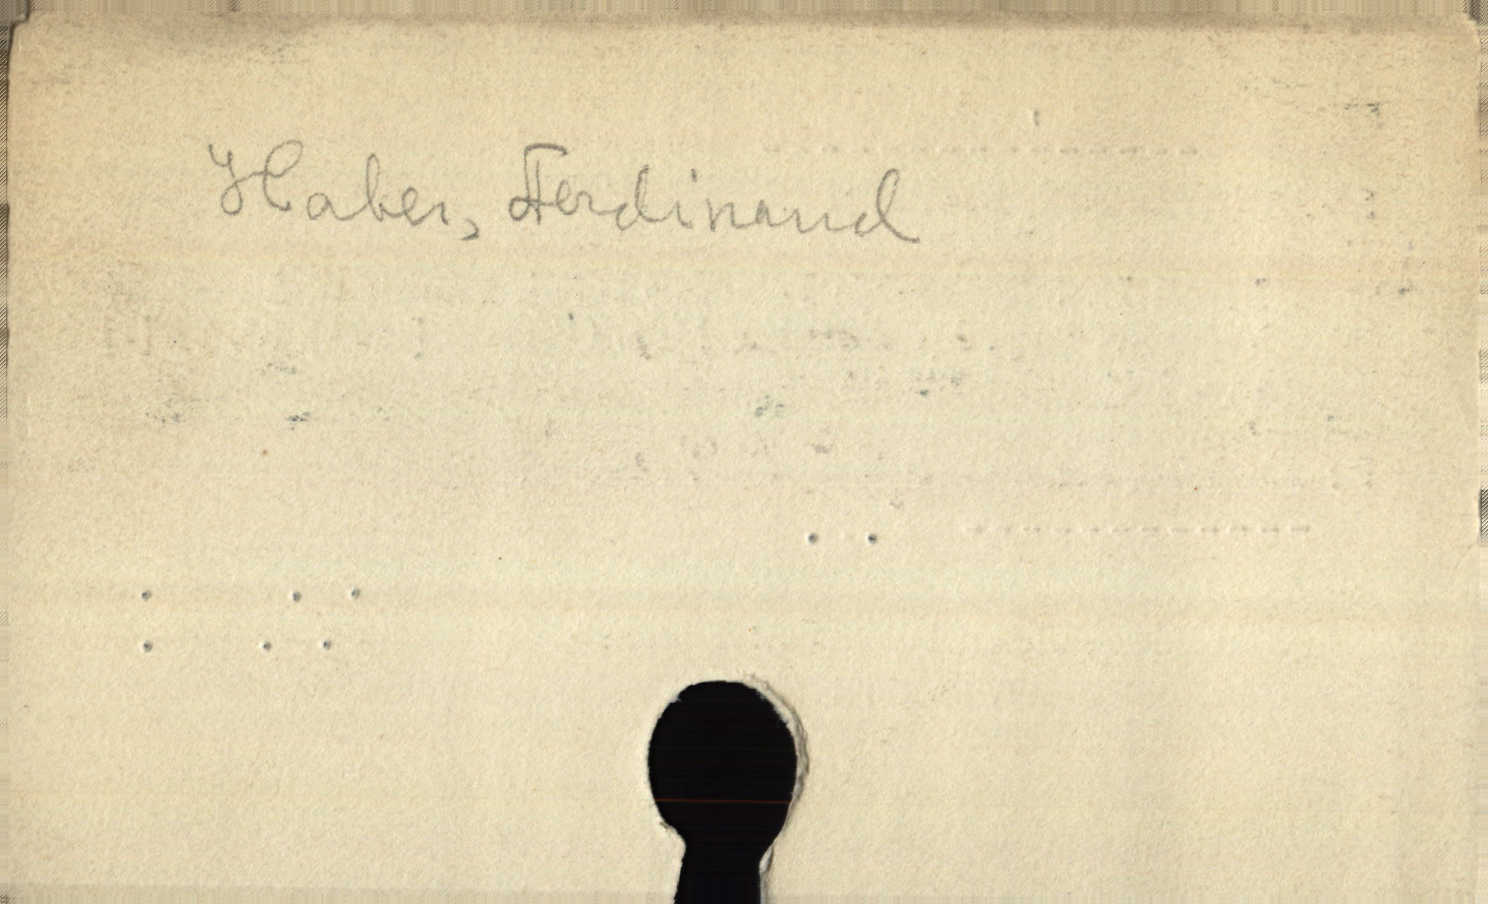 Haber, Ferdinand